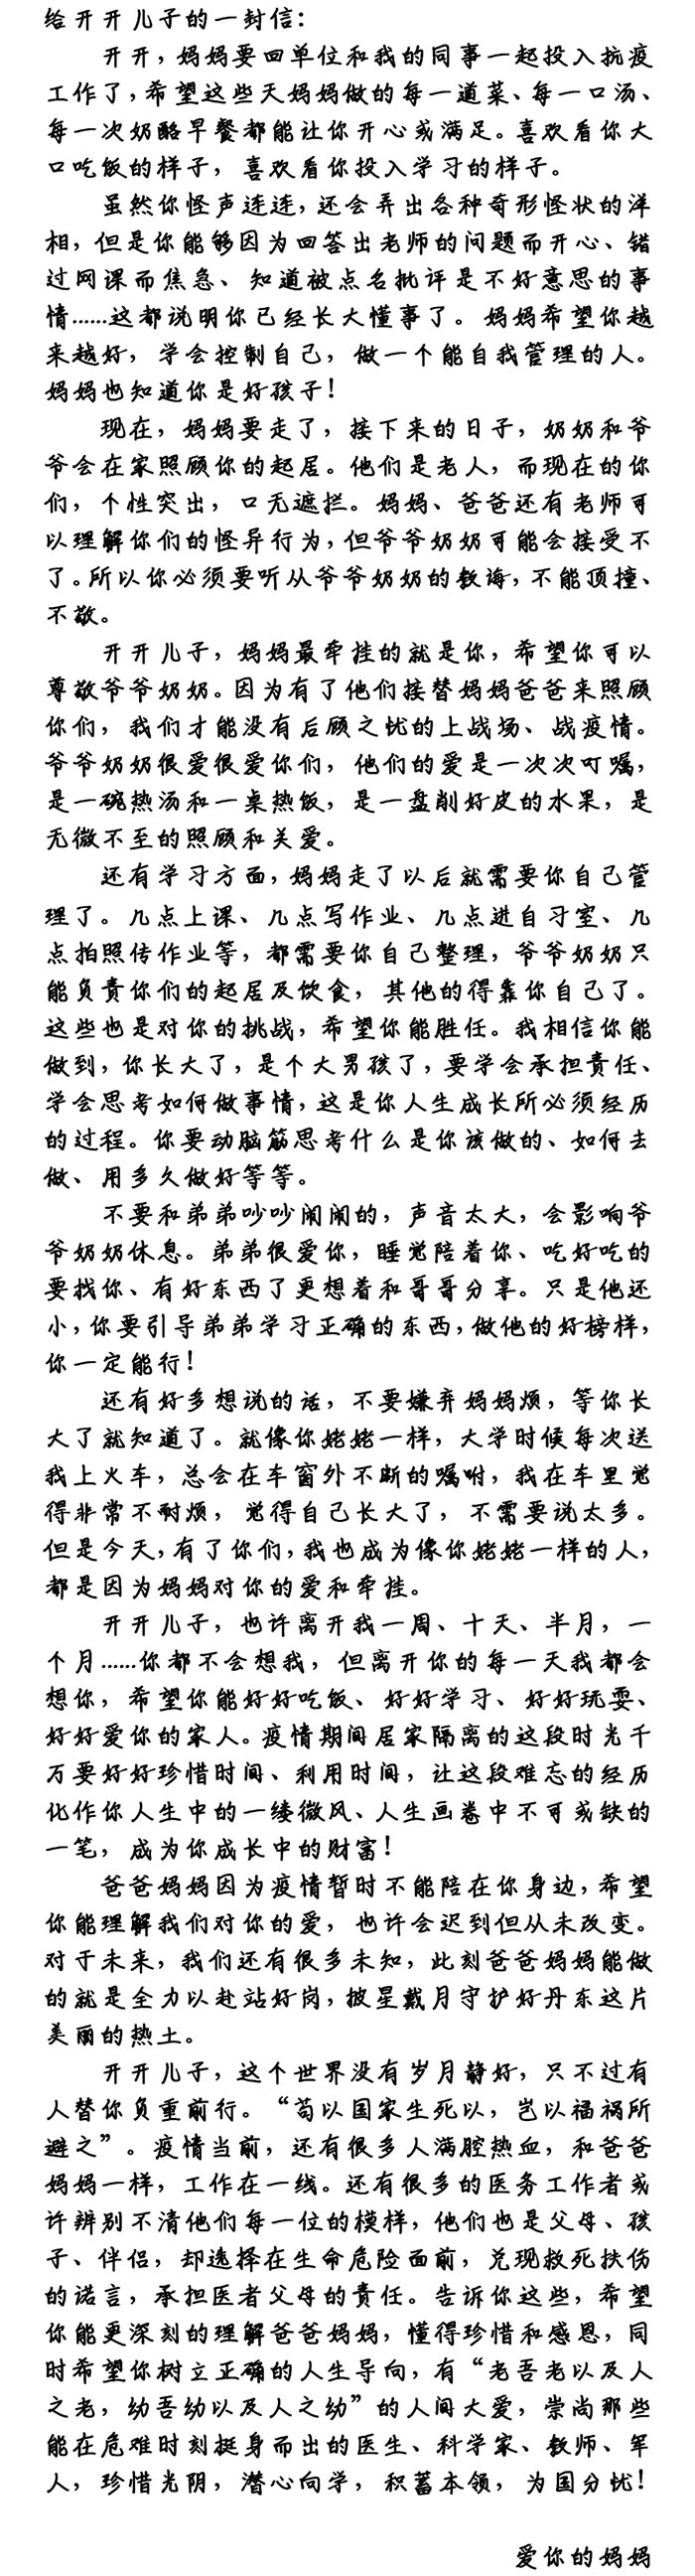 给开开儿子的一封信：
开开，妈妈要回单位和我的同事一起投入抗疫
工作了，希望这些天妈妈做的每一道菜、每一口汤、
每一次奶酪早餐都能让你开心或满足。喜欢看你大
口吃饭的样子，喜欢看你投入学习的样子。
虽然你怪声连连，还会弄出各种奇形怪状的洋
相，但是你能够因为回答出老师的问题而开心、错
过网课而焦急、知道被点名批评是不好意思的事
情……这都说明你已经长大懂事了。妈妈希望你越
来越好，学会控制自己，做一个能自我管理的人。
妈妈也知道你是好孩子！
现在，妈妈要走了，接下来的日子，奶奶和爷
爷会在家照顾你的起居。他们是老人，而现在的你
们，个性突出，口无遮拦。妈妈、爸爸还有老师可
以理解你们的怪异行为，但爷爷奶奶可能会接受不
了。所以你必须要听从爷爷奶奶的教诲，不能顶撞、
不敬。
开开儿子，妈妈最牵挂的就是你，希望你可以
尊敬爷爷奶奶。因为有了他们接替妈妈爸爸来照顾
你们，我们才能没有后顾之忧的上战场、战疫情。
爷爷奶奶很爱很爱你们，他们的爱是一次次叮嘱，
是一碗热汤和一桌热饭，是一盘削好皮的水果，是
无微不至的照顾和关爱。
还有学习方面，妈妈走了以后就需要你自己管
理了。几点上课、几点写作业、几点进自习室、几
点拍照传作业等，都需要你自己整理，爷爷奶奶只
能负责你们的起居及饮食，其他的得靠你自己了。
这些也是对你的挑战，希望你能胜任。我相信你能
做到，你长大了，是个大男孩了，要学会承担责任、
学会思考如何做事情，这是你人生成长所必须经历
的过程。你要动脑筋思考什么是你该做的、如何去
做、用多久做好等等。
不要和弟弟吵吵闹闹的，声音太大，会影响爷
爷奶奶休息。弟弟很爱你，睡觉陪着你、吃好吃的
要找你、有好东西了更想着和哥哥分享。只是他还
小，你要引导弟弟学习正确的东西，做他的好榜样，
你一定能行！
还有好多想说的话，不要嫌弃妈妈烦，等你长
大了就知道了。就像你姥姥一样，大学时候每次送
我上火车，总会在车窗外不断的嘱咐，我在车里觉
得非常不耐烦，觉得自己长大了，不需要说太多。
但是今天，有了你们，我也成为像你姥姥一样的人，
都是因为妈妈对你的爱和牵挂。
开开儿子，也许离开我一周、十天、半月，一
个月……你都不会想我，但离开你的每一天我都会
想你，希望你能好好吃饭、好好学习、好好玩耍、
好好爱你的家人。疫情期间居家隔离的这段时光千
万要好好珍惜时间、利用时间，让这段难忘的经历
化作你人生中的一缕微风、人生画卷中不可或缺的
一笔，成为你成长中的财富！
爸爸妈妈因为疫情暂时不能陪在你身边，希望
你能理解我们对你的爱，也许会迟到但从未改变。
对于未来，我们还有很多未知，此刻爸爸妈妈能做
的就是全力以赴站好岗，披星戴月守护好丹东这片
美丽的热土。
开开儿子，这个世界没有岁月静好，只不过有
人替你负重前行。“苟以国家生死以，岂以福祸所
避之”。疫情当前，还有很多人满腔热血，和爸爸
妈妈一样，工作在一线。还有很多的医务工作者或
许辨别不清他们每一位的模样，他们也是父母、孩
子、伴侣，却选择在生命危险面前，兑现救死扶伤
的诺言，承担医者父母的责任。告诉你这些，希望
你能更深刻的理解爸爸妈妈，懂得珍惜和感恩，同
时希望你树立正确的人生导向，有“老吾老以及人
之老，幼吾幼以及人之幼”的人间大爱，崇尚那些
能在危难时刻挺身而出的医生、科学家、教师、军
人，珍惜光阴，潜心向学，积蓄本领，为国分忧！
爱你的妈妈